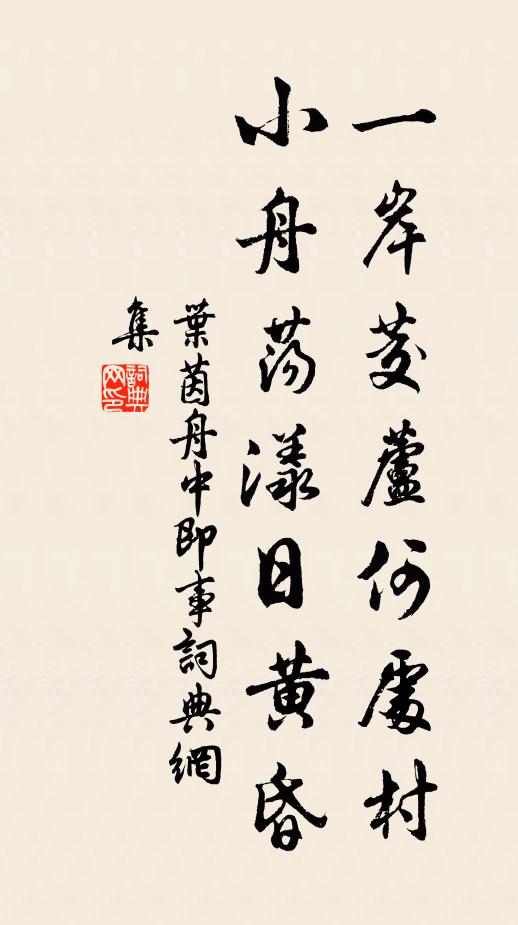 一岸茭蘆何處村
小舟蕩漾日黃昏
葉茵舟中即事詞典網
集
詞典
网印